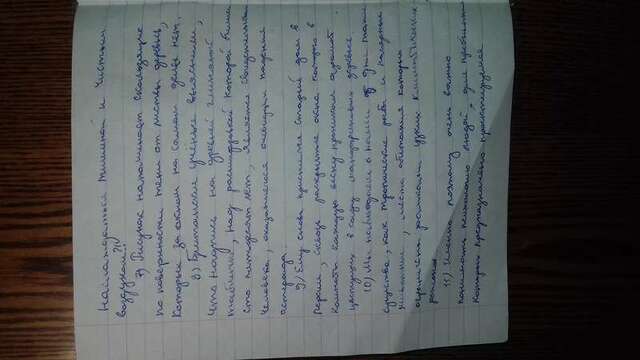 наслаждаться тишиной и чистым
воздухом?!
7) Рисунок напоминает скользящие
по поверхности тени от листвы деревьев,
которых за окном на самом деле нет.
8) Британские учёные выяснили,
что надпись на древней глиняной
табличке, над расшифровкой которой бились
сто пятьдесят лет, является свидетельством
человека, оказавшегося очевидцем падения
астероида.
9) Ему снова приснился старый дом в
Персии, сквозь раскрытые окна которого в
комнаты каждую весну проникал аромат
цветущих в саду мандариновых деревьев.
10) Мы наблюдаем в наши дни такие
существа, как тропические рыбы и полярные
животные, место обитания которых
ограничено рамками узких климатических
районов.
11) Именно поэтому очень важно
понимать психологию людей, для пребывания
которых предназначено проектируемое